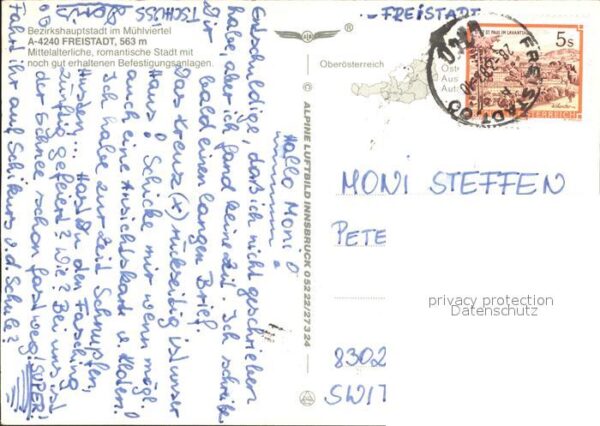 Bezirkshauptstadt im Mühlviertel
A-4240 FREISTADT, 563 m
Mittelalterliche, romantische Stadt mit
noch gut erhaltenen Befestigungsanlagen.
Hallo Moni!
Entschuldige, daß ich nicht geschrieben
habe, aber ich fand keine Zeit. Ich schreibe
Dir bald einen langen Brief.
Das Kreuz (x) ist unser
Haus! Schicke mir wenn mögl.
auch eine Ansichtskarte v. Kloten!
Ich habe zur Zeit Schnupfen,
Husten... Hast Du den Fasching
zünftig gefeiert? Wie? Bei uns ist
der Schnee schon fast weg! SUPER!
Fährt ihr auf Schikurs v. d. Schule?
TSCHÜSS
© ALPINE LUFTBILD INNSBRUCK 0 52 22/27 3 24
Oberösterreich
- FREISTADT
ST. PAUL IM LAVANTTAL
5s
REPUBLIK ÖSTERREICH
FREISTADT OÖ
MONI STEFFEN
PETE
8302
SWIT
privacy protection
Datenschutz